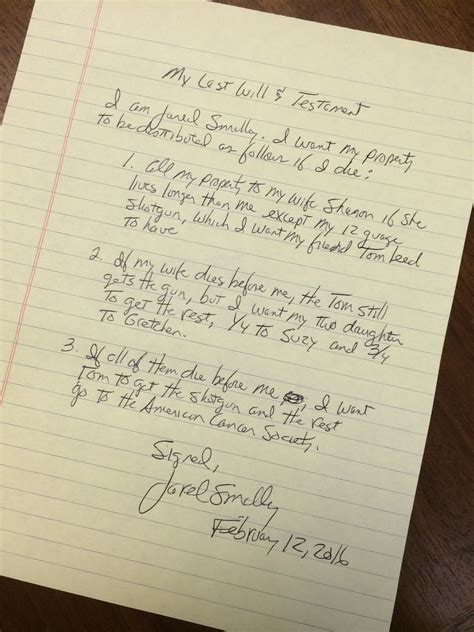 My Last Will & Testament
I am Jared Smelly. I want my property
to be distributed as follows if I die:
1. All my property to my wife Shanon if she
lives longer than me except my 12 guage
shotgun, which I want my friend Tom Leed
to have
2. If my wife dies before me, the Tom still
gets the gun, but I want my two daughter
to get the rest, 1/4 to Suzy and 3/4
to Gretchen.
3. If all of them die before me, I want
Tom to get the shotgun and the rest
go to the American Cancer Society.
Signed,
Jarel Smelly
February 12, 2016